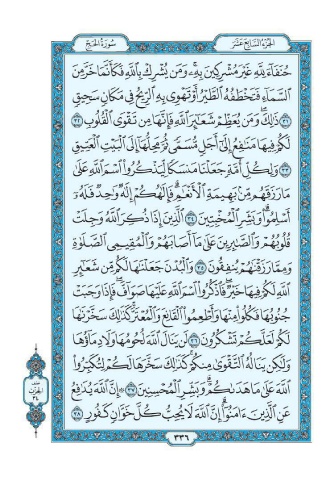 الجزء السابع عشر
سورة الحج
حُنَفَآءَ لِلَّهِ غَيْرَ مُشْرِكِينَ بِهِۦ ۚ وَمَن يُشْرِكْ بِٱللَّهِ فَكَأَنَّمَا خَرَّ مِنَ
ٱلسَّمَآءِ فَتَخْطَفُهُ ٱلطَّيْرُ أَوْ تَهْوِى بِهِ ٱلرِّيحُ فِى مَكَانٍ سَحِيقٍ
٣١ ذَٰلِكَ وَمَن يُعَظِّمْ شَعَـٰٓئِرَ ٱللَّهِ فَإِنَّهَا مِن تَقْوَى ٱلْقُلُوبِ ٣٢
لَكُمْ فِيهَا مَنَـٰفِعُ إِلَىٰٓ أَجَلٍ مُّسَمًّى ثُمَّ مَحِلُّهَآ إِلَى ٱلْبَيْتِ ٱلْعَتِيقِ
٣٣ وَلِكُلِّ أُمَّةٍ جَعَلْنَا مَنسَكًا لِّيَذْكُرُوا۟ ٱسْمَ ٱللَّهِ عَلَىٰ
مَا رَزَقَهُم مِّنۢ بَهِيمَةِ ٱلْأَنْعَـٰمِ ۗ فَإِلَـٰهُكُمْ إِلَـٰهٌ وَٰحِدٌ فَلَهُۥٓ
أَسْلِمُوا۟ ۗ وَبَشِّرِ ٱلْمُخْبِتِينَ ٣٤ ٱلَّذِينَ إِذَا ذُكِرَ ٱللَّهُ وَجِلَتْ
قُلُوبُهُمْ وَٱلصَّـٰبِرِينَ عَلَىٰ مَآ أَصَابَهُمْ وَٱلْمُقِيمِى ٱلصَّلَوٰةِ
وَمِمَّا رَزَقْنَـٰهُمْ يُنفِقُونَ ٣٥ وَٱلْبُدْنَ جَعَلْنَـٰهَا لَكُم مِّن شَعَـٰٓئِرِ
ٱللَّهِ لَكُمْ فِيهَا خَيْرٌ ۖ فَٱذْكُرُوا۟ ٱسْمَ ٱللَّهِ عَلَيْهَا صَوَآفَّ ۖ فَإِذَا وَجَبَتْ
جُنُوبُهَا فَكُلُوا۟ مِنْهَا وَأَطْعِمُوا۟ ٱلْقَانِعَ وَٱلْمُعْتَرَّ ۚ كَذَٰلِكَ سَخَّرْنَـٰهَا
لَكُمْ لَعَلَّكُمْ تَشْكُرُونَ ٣٦ لَن يَنَالَ ٱللَّهَ لُحُومُهَا وَلَا دِمَآؤُهَا
وَلَـٰكِن يَنَالُهُ ٱلتَّقْوَىٰ مِنكُمْ ۚ كَذَٰلِكَ سَخَّرَهَا لَكُمْ لِتُكَبِّرُوا۟
ٱللَّهَ عَلَىٰ مَا هَدَىٰكُمْ ۗ وَبَشِّرِ ٱلْمُحْسِنِينَ ٣٧ ۞ إِنَّ ٱللَّهَ يُدَٰفِعُ
عَنِ ٱلَّذِينَ ءَامَنُوٓا۟ ۗ إِنَّ ٱللَّهَ لَا يُحِبُّ كُلَّ خَوَّانٍ كَفُورٍ ٣٨
نصف
الحزب
٣٤
٣٣٦